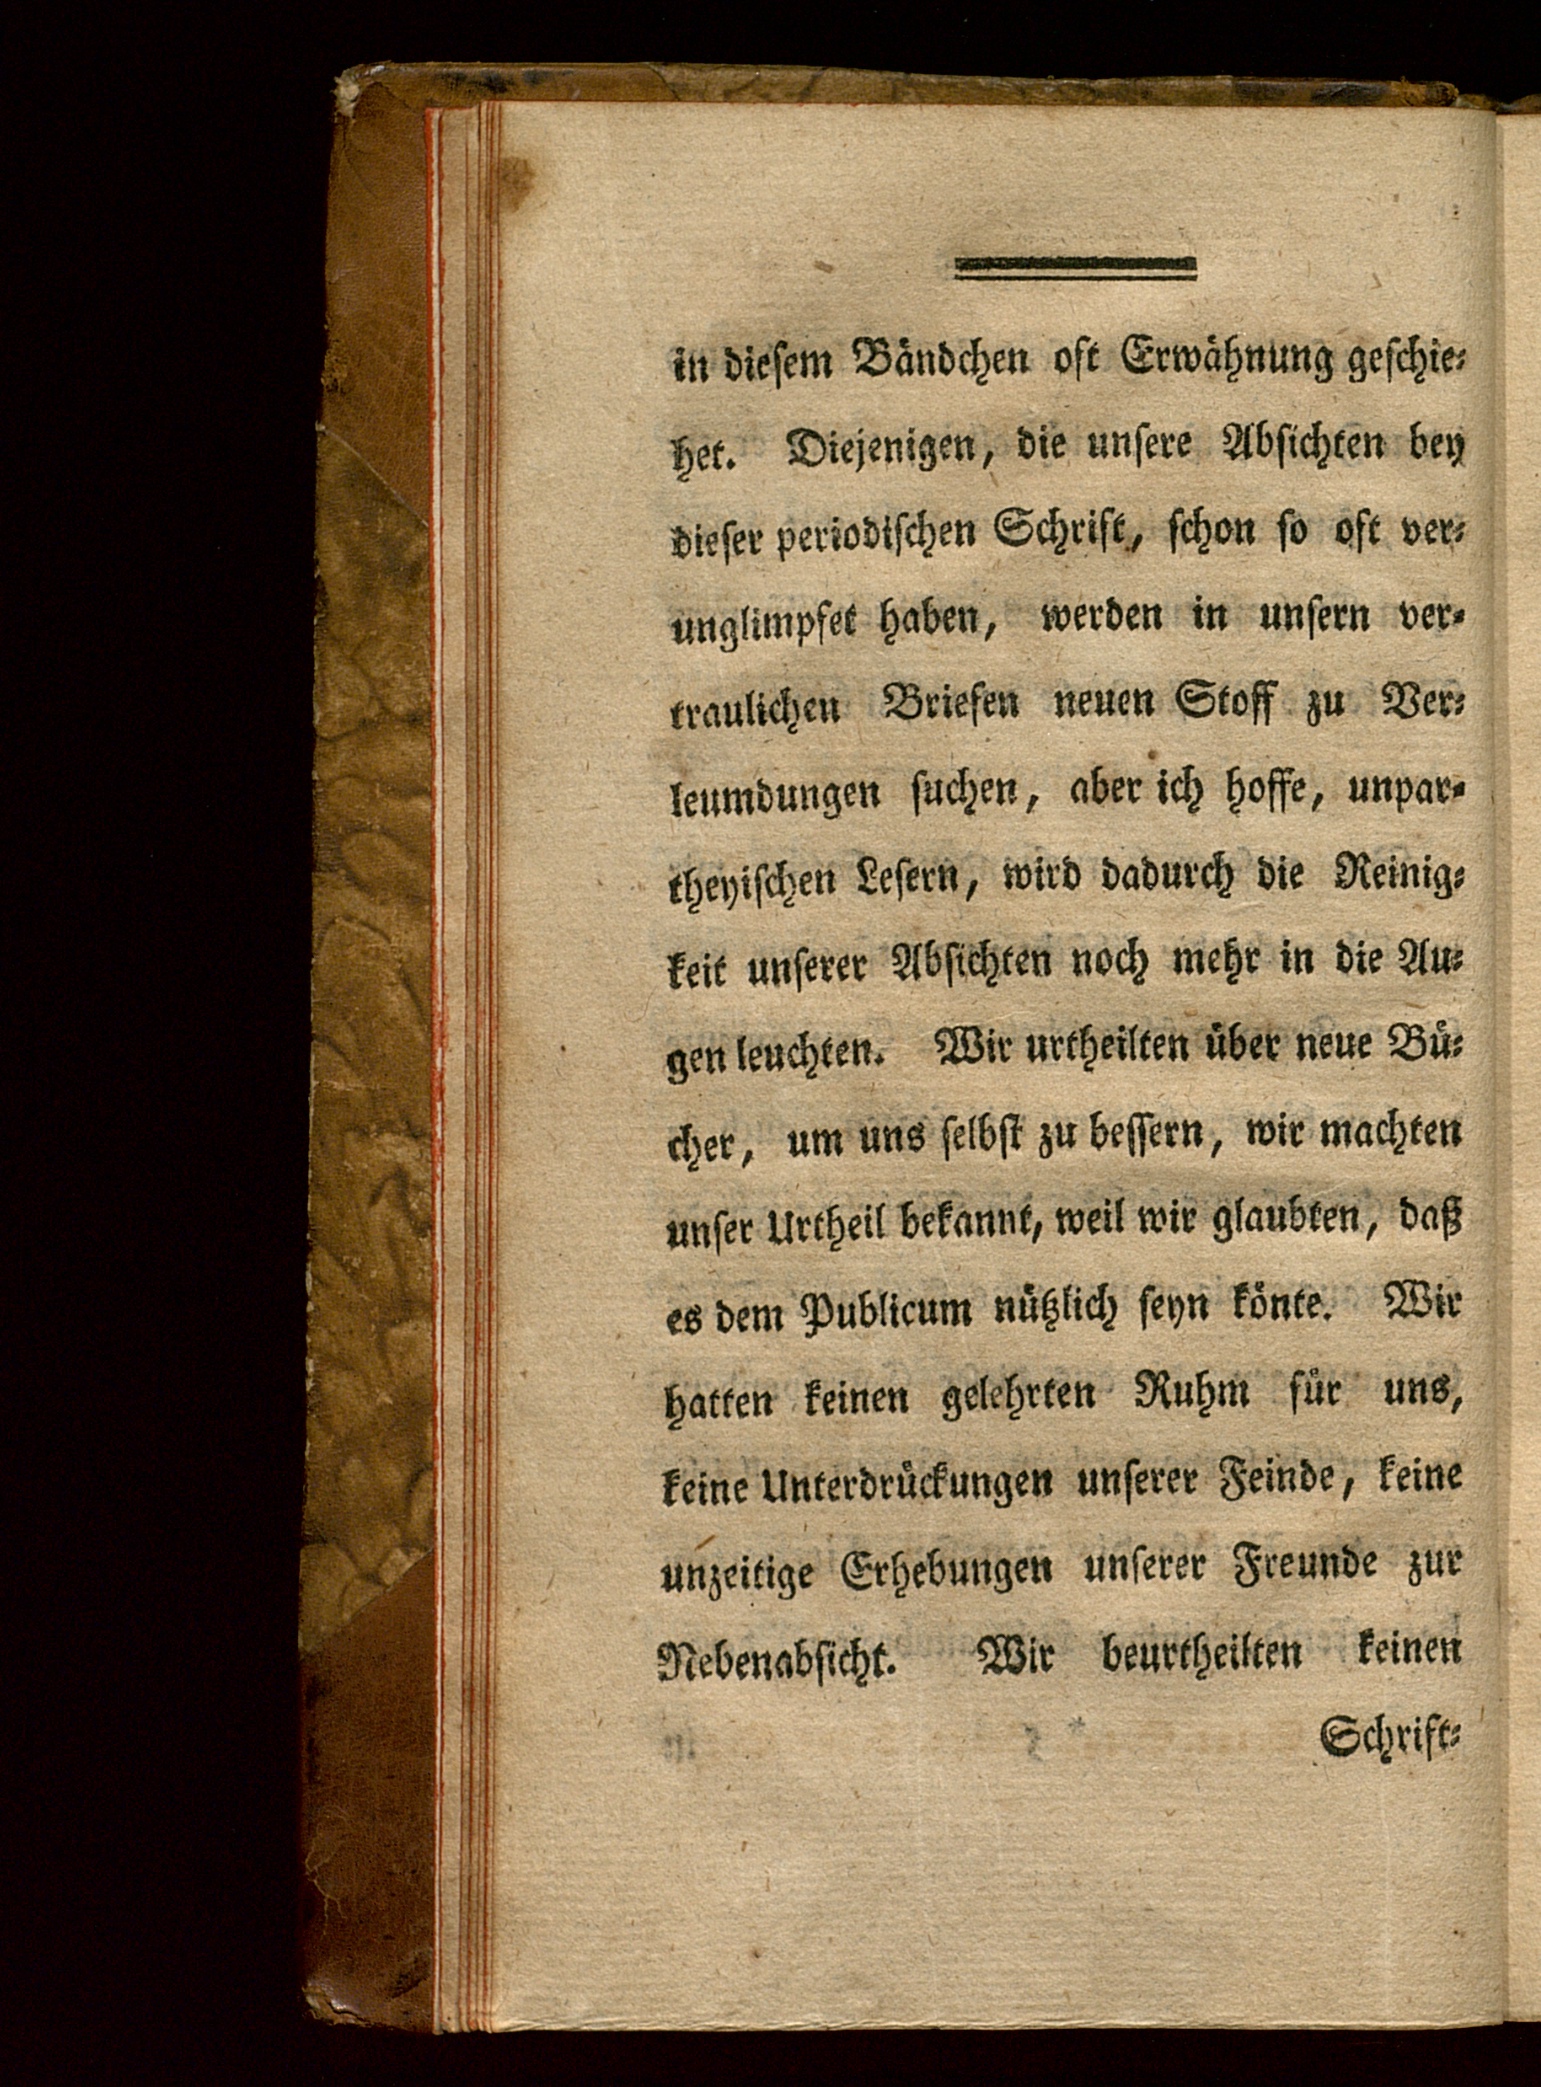 in diesem Bändchen oft Erwähnung geschie-
het. Diejenigen, die unsere Absichten bey
dieser periodischen Schrift, schon so oft ver-
unglimpfet haben, werden in unsern ver-
traulichen Briefen neuen Stoff zu Ver-
leumdungen suchen, aber ich hoffe, unpar-
theyischen Lesern, wird dadurch die Reinig-
keit unserer Absichten noch mehr in die Au-
gen leuchten. Wir urtheilten über neue Bü-
cher, um uns selbst zu bessern, wir machten
unser Urtheil bekannt, weil wir glaubten, daß
es dem Publicum nützlich seyn könte. Wir
hatten keinen gelehrten Ruhm für uns,
keine Unterdrückungen unserer Feinde, keine
unzeitige Erhebungen unserer Freunde zur
Nebenabsicht. Wir beurtheilten keinen
Schrift-